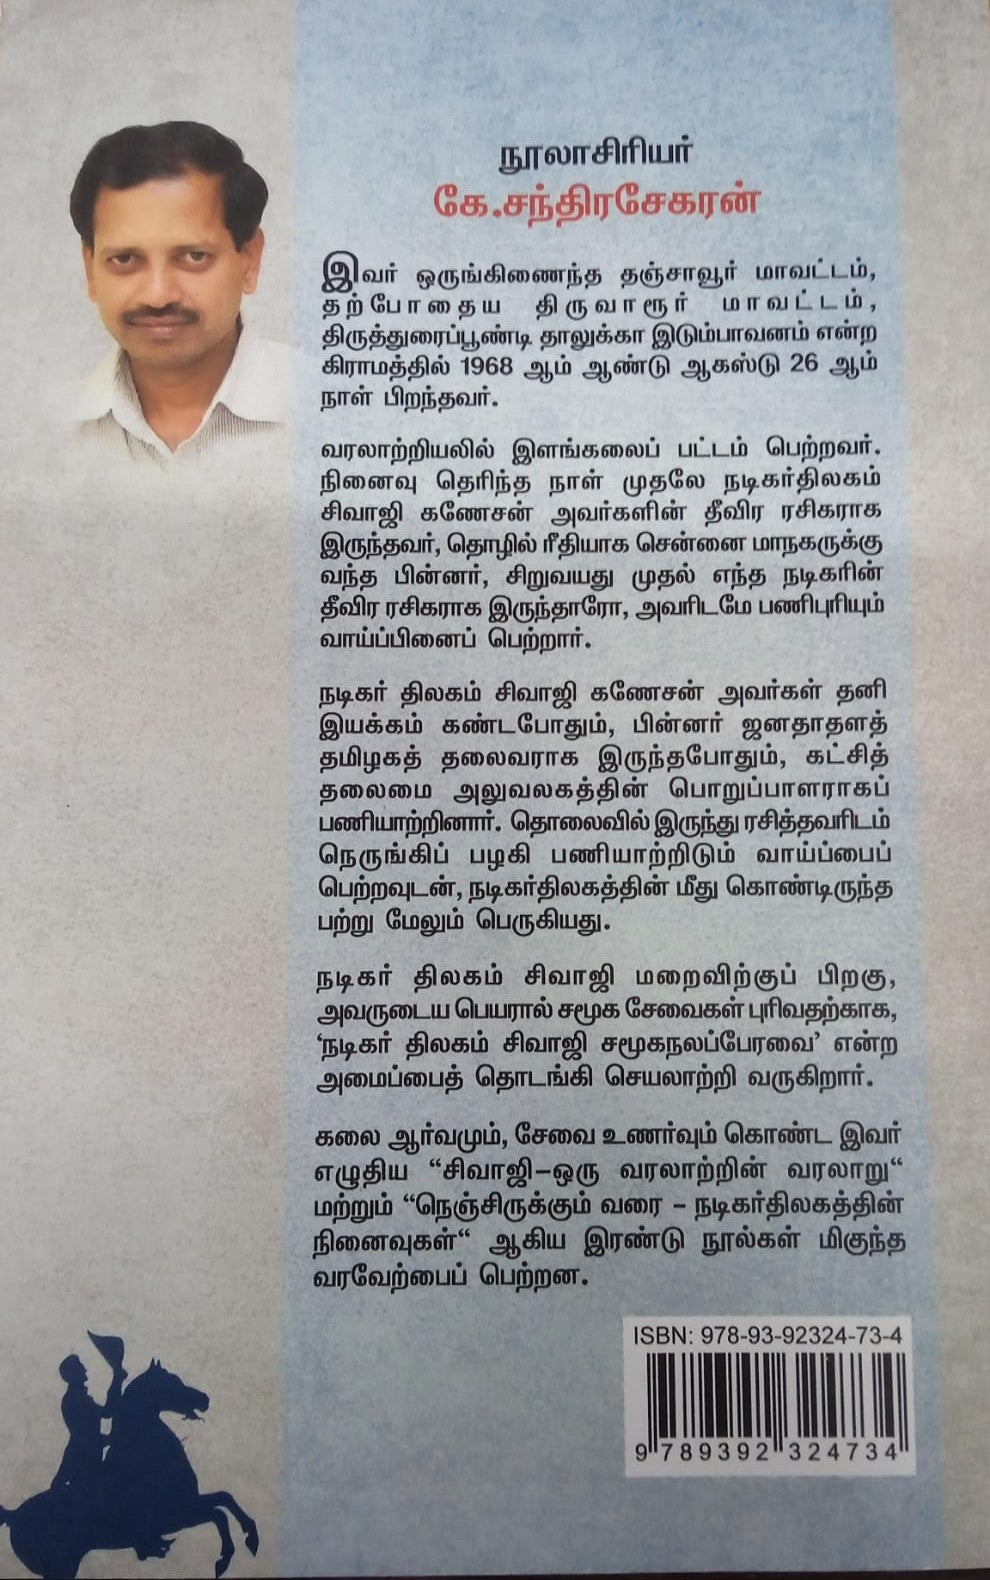 நூலாசிரியர்
கே.சந்திரசேகரன்
இவர் ஒருங்கிணைந்த தஞ்சாவூர் மாவட்டம்,
தற்போதைய திருவாரூர் மாவட்டம்,
திருத்துரைப்பூண்டி தாலுக்கா இடும்பாவனம் என்ற
கிராமத்தில் 1968 ஆம் ஆண்டு ஆகஸ்டு 26 ஆம்
நாள் பிறந்தவர்.
வரலாற்றியலில் இளங்கலைப் பட்டம் பெற்றவர்.
நினைவு தெரிந்த நாள் முதலே நடிகர்திலகம்
சிவாஜி கணேசன் அவர்களின் தீவிர ரசிகராக
இருந்தவர், தொழில் ரீதியாக சென்னை மாநகருக்கு
வந்த பின்னர், சிறுவயது முதல் எந்த நடிகரின்
தீவிர ரசிகராக இருந்தாரோ, அவரிடமே பணிபுரியும்
வாய்ப்பினைப் பெற்றார்.
நடிகர் திலகம் சிவாஜி கணேசன் அவர்கள் தனி
இயக்கம் கண்டபோதும், பின்னர் ஜனதாதளத்
தமிழகத் தலைவராக இருந்தபோதும், கட்சித்
தலைமை அலுவலகத்தின் பொறுப்பாளராகப்
பணியாற்றினார். தொலைவில் இருந்து ரசித்தவரிடம்
நெருங்கிப் பழகி பணியாற்றிடும் வாய்ப்பைப்
பெற்றவுடன், நடிகர்திலகத்தின் மீது கொண்டிருந்த
பற்று மேலும் பெருகியது.
நடிகர் திலகம் சிவாஜி மறைவிற்குப் பிறகு,
அவருடைய பெயரால் சமூக சேவைகள் புரிவதற்காக,
‘நடிகர் திலகம் சிவாஜி சமூகநலப்பேரவை’ என்ற
அமைப்பைத் தொடங்கி செயலாற்றி வருகிறார்.
கலை ஆர்வமும், சேவை உணர்வும் கொண்ட இவர்
எழுதிய “சிவாஜி–ஒரு வரலாற்றின் வரலாறு“
மற்றும் “நெஞ்சிருக்கும் வரை – நடிகர்திலகத்தின்
நினைவுகள்“ ஆகிய இரண்டு நூல்கள் மிகுந்த
வரவேற்பைப் பெற்றன.
ISBN: 978-93-92324-73-4
9 789392 324734